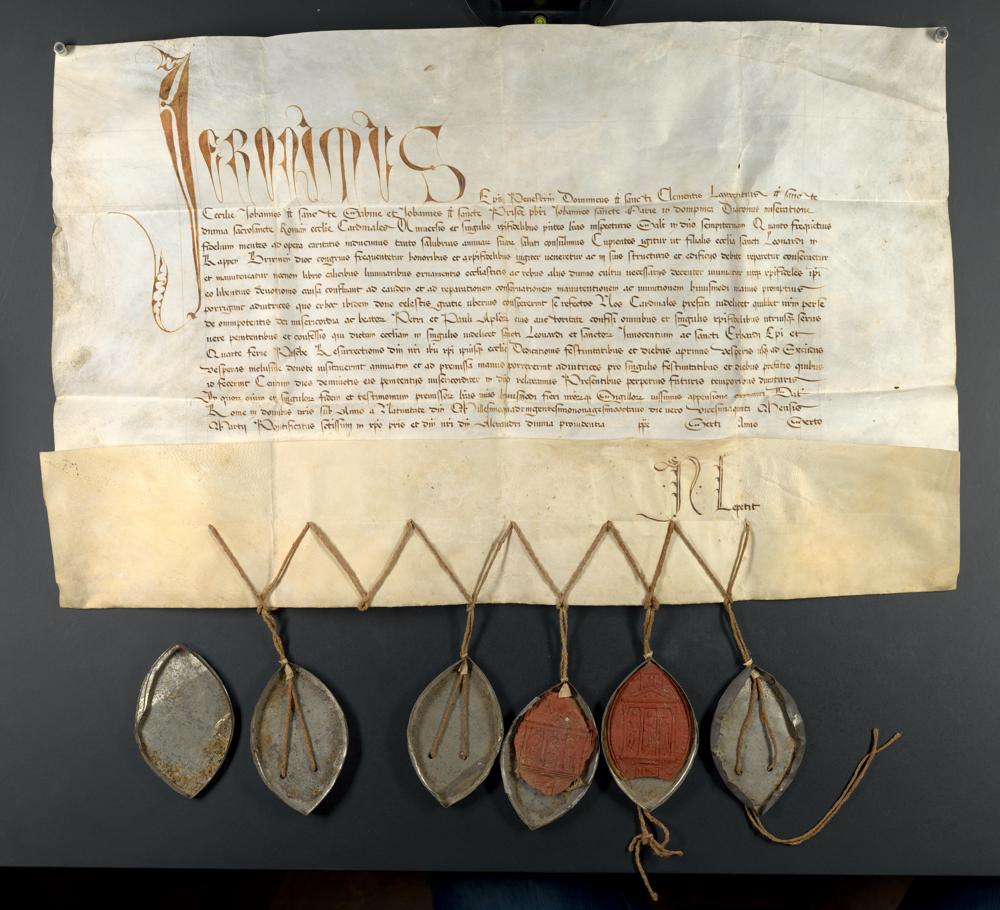 Jeronimus
Epus Penestrin Dominicus tt sancti Clementis Laurentius tt sancte
Cecilie Johannes tt sancte Sabine et Johannes tt sancte Prisce pbri Johannes sancte Marie in dompnica Diaconus miseratione
diuina sacrosancte Romane ecclie Cardinales Vniuersis et singulis xpifidelibus pntes lras inspecturis Salt in dno sempiternam Quanto frequentius
fidelium mentes ad opera caritatis inducimus tanto salubrius animarum suarum saluti consulimus Cupientes igitur ut ecclia sancti Leonardi in
dioc congruis frequentetur honoribus et a xpifidelibus iugiter ueneretur ac in suis structuris et edificijs debite reparetur conseruetur
et manuteneatur necnon libris calicibus luminaribus ornamentis ecclesiasticis ac rebus alijs diuino cultui necessarijs decenter muniatur xpifideles ipi
eo libentius deuotionis causa confluant ad eandem et ad reparationem conseruationem manutentionem ac munitionem huiusmodi manus promptius
porrigant adiutrices quo ex hoc ibidem dono celestis gratie uberius conspexerint se refectos Nos Cardinales prefati uidelicet quilibet nrm per se
de omnipotentis dei misericordia ac beatorum Petri et Pauli Aplorum eius auctoritate confisi omnibus et singulis xpifidelibus utriusque sexus
uere penitentibus et confessis qui dictam eccliam in singulis uidelicet sancti Leonardi et sanctorum Innocentium ac sancti Erhardi Epi et
Quarte ferie Pasce Resurrectionis dni nri ihu xpi ipiusque ecclie Dedicationis festiuitatibus et diebus a primis vesperis usque ad Secundas
vesperas inclusiue deuote uisitauerint annuatim et ad premissa manus porrexerint adiutrices pro singulis festiuitatibus et diebus prefatis quibus
id fecerint Centum dies de iniunctis eis penitentijs misericorditer in dno relaxamus Presentibus perpetuis futuris temporibus duraturis
In quorum omnium et singulorum fidem et testimonium premissorum lras nras huiusmodi fieri nrorumque Sigillorum iussimus appensione Dat
Rome in domibus nris sub Anno a Natiuitate dni Millesimoquadringentesimononagesimooctauo die uero vicesimaquinta Mensis
Martij Pontificatus sctissimi in xpo pris et dni nri dni Alexandri diuina prouidentia ppe Sexti Anno Sexto
N Lepetit